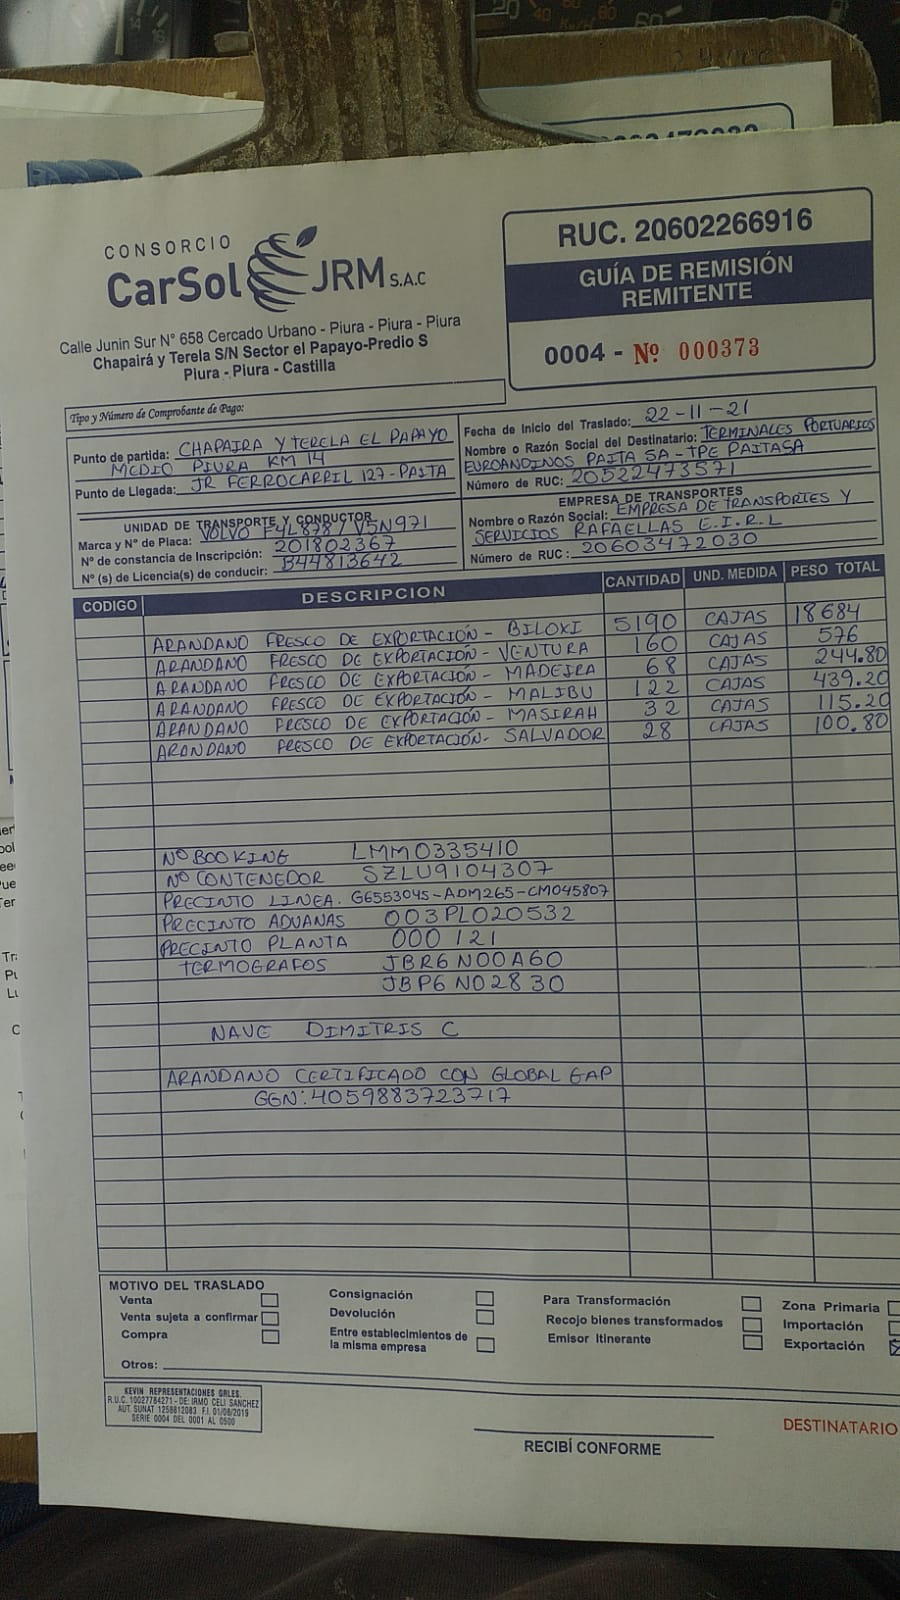 CONSORCIO
CarSol JRM S.A.C
Calle Junin Sur N° 658 Cercado Urbano - Piura - Piura - Piura
Chapairá y Terela S/N Sector el Papayo-Predio S
Piura - Piura - Castilla
RUC. 20602266916
GUÍA DE REMISIÓN
REMITENTE
0004 - Nº 000373
Tipo y Número de Comprobante de Pago:
Punto de partida: CHAPAIRA Y TERELA EL PAPAYO
MEDIO PIURA KM 14
Punto de Llegada: JR FERROCARRIL 127-PAITA
Fecha de Inicio del Traslado: 22-11-21
Nombre o Razón Social del Destinatario: TERMINALES PORTUARIOS
EUROANDINOS PAITA SA - TPE PAITASA
Número de RUC: 20522473571
UNIDAD DE TRANSPORTE Y CONDUCTOR
Marca y Nº de Placa: VOLVO F4L878 / V5N971
Nº de constancia de Inscripción: 201802367
Nº (s) de Licencia(s) de conducir: B44813642
EMPRESA DE TRANSPORTES
Nombre o Razón Social: EMPRESA DE TRANSPORTES Y
SERVICIOS RAFAELLAS E.I.R.L
Número de RUC: 20603472030
CODIGO DESCRIPCION CANTIDAD UND. MEDIDA PESO TOTAL
ARANDANO FRESCO DE EXPORTACIÓN - BILOXI 5190 CAJAS 18684
ARANDANO FRESCO DE EXPORTACIÓN - VENTURA 160 CAJAS 576
ARANDANO FRESCO DE EXPORTACIÓN - MADEIRA 68 CAJAS 244.80
ARANDANO FRESCO DE EXPORTACIÓN - MALIBU 122 CAJAS 439.20
ARANDANO FRESCO DE EXPORTACIÓN - MASIRAH 32 CAJAS 115.20
ARANDANO FRESCO DE EXPORTACIÓN - SALVADOR 28 CAJAS 100.80
Nº BOOKING LMM0335410
Nº CONTENEDOR SZLU9104307
PRECINTO LINEA. G6553045-ADM265-CM045807
PRECINTO ADUANAS 003PL020532
PRECINTO PLANTA 000121
TERMOGRAFOS JBR6N00A60
JBP6N02830
NAVE DIMITRIS C
ARANDANO CERTIFICADO CON GLOBAL GAP
GGN: 4059883723717
MOTIVO DEL TRASLADO
Venta
Venta sujeta a confirmar
Compra
Otros:
Consignación
Devolución
Entre establecimientos de
la misma empresa
Para Transformación
Recojo bienes transformados
Emisor Itinerante
Zona Primaria
Importación
Exportación
KEVIN REPRESENTACIONES GRLES.
R.U.C. 10027784271 - DE: IRMO CELI SANCHEZ
AUT. SUNAT 1258812083 F.I. 01/08/2019
SERIE 0004 DEL 0001 AL 0500
RECIBÍ CONFORME
DESTINATARIO